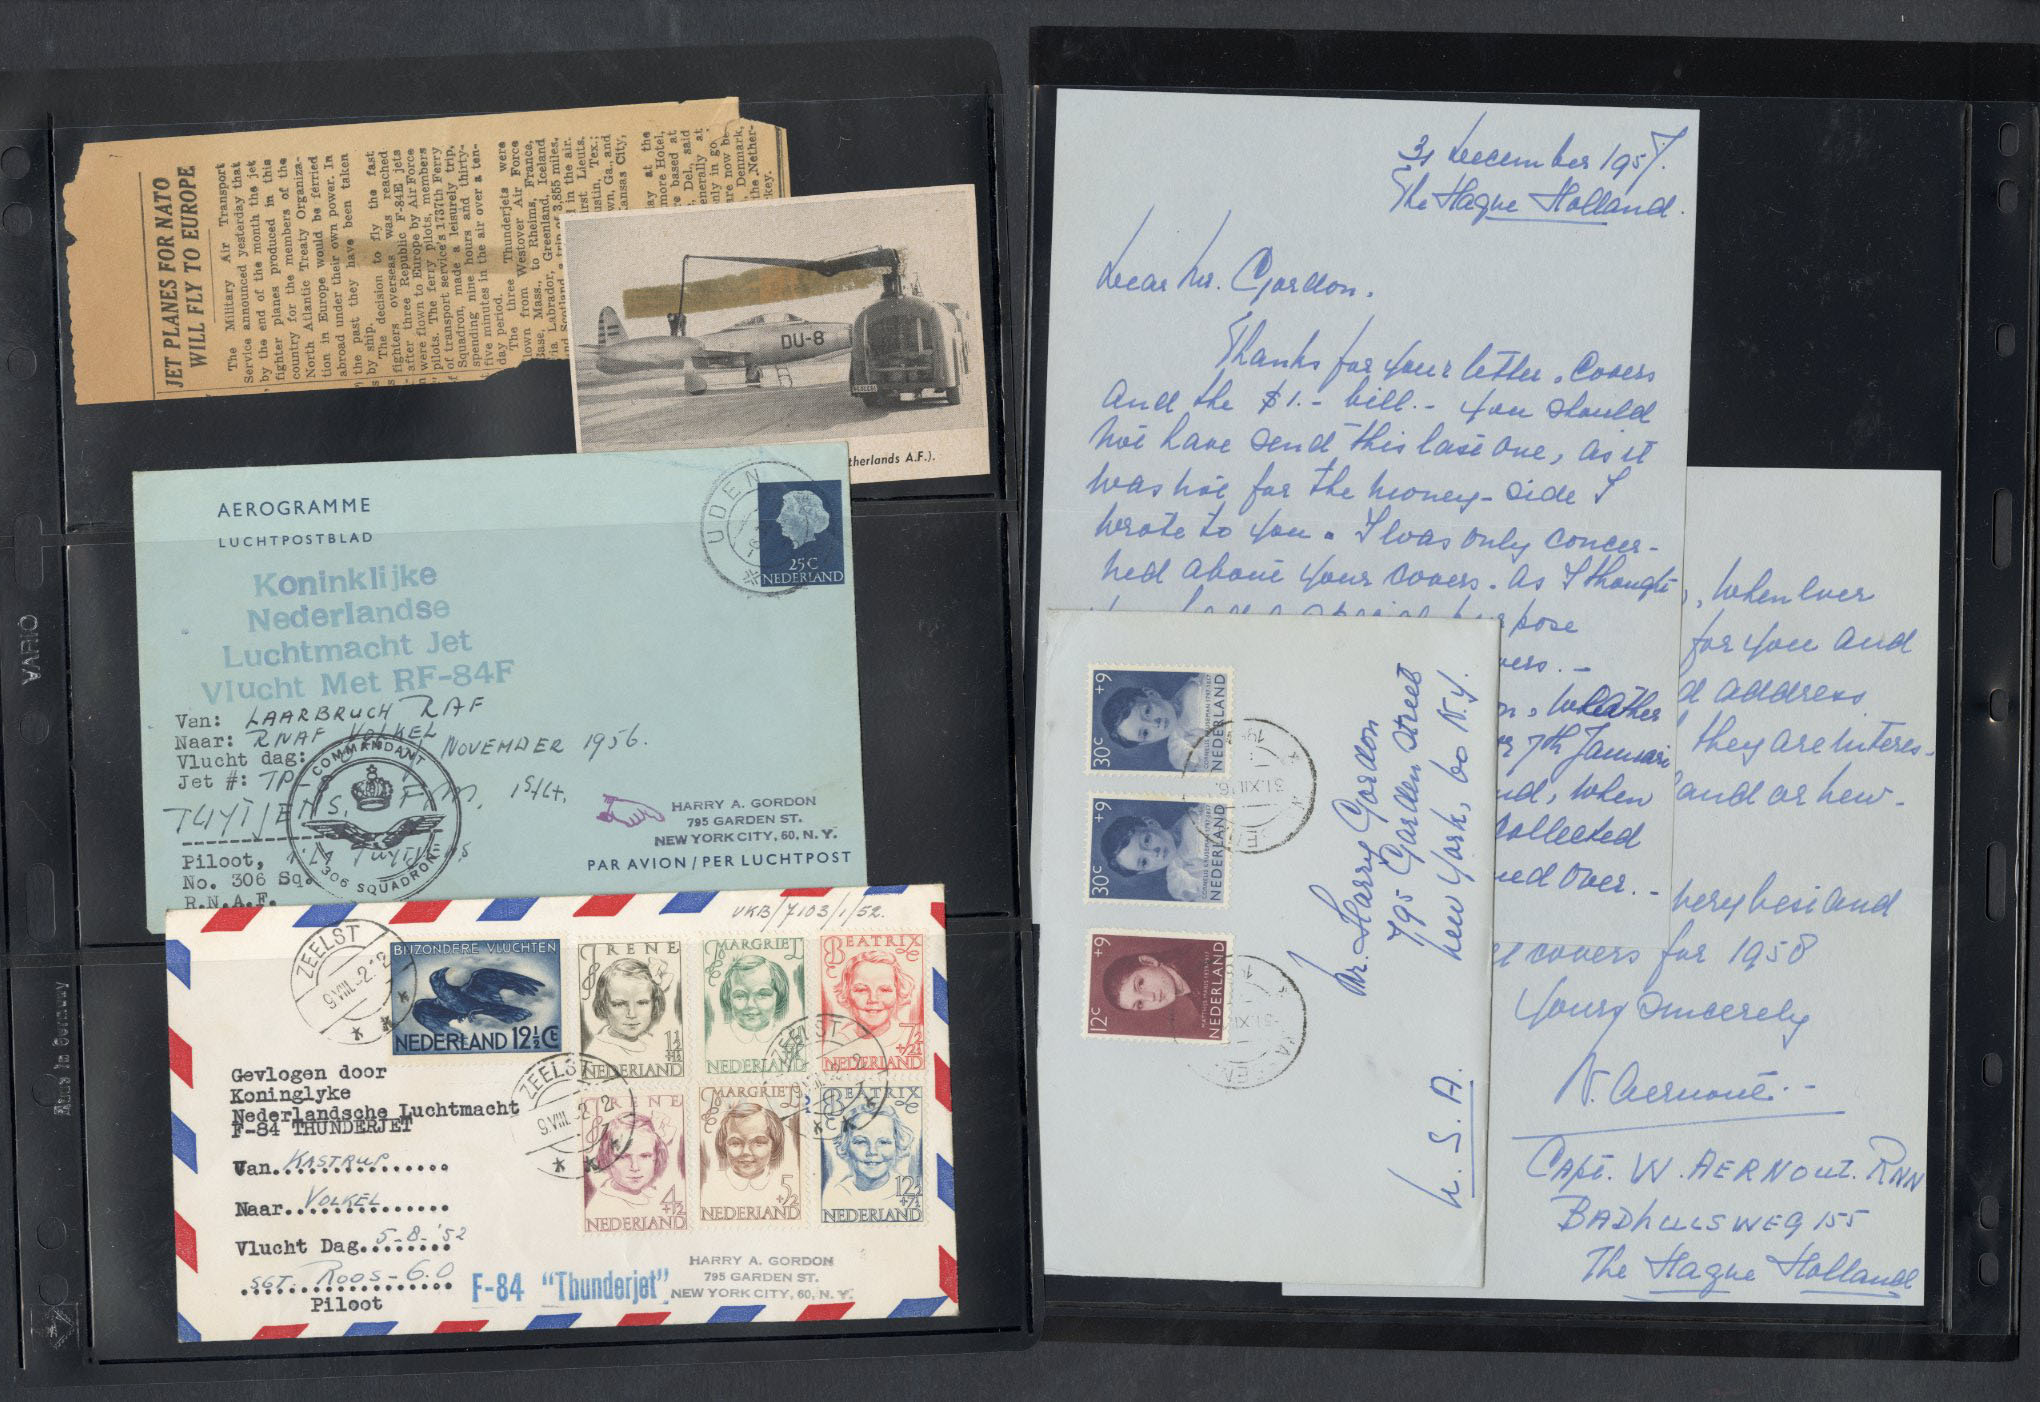 JET PLANES FOR NATO
WILL FLY TO EUROPE
The Military Air Transport
Service announced yesterday that
by the end of the month the jet
fighter planes produced in this
country for the members of the
North Atlantic Treaty Organiza-
tion in Europe would be ferried
abroad under their own power. In
the past they have been taken
by ship.
The decision to fly the fast
fighters overseas was reached
after three Republic F-84E jets
were flown to Europe by Air Force
pilots. The ferry pilots, members
of transport service's 1737th Ferry
Squadron, made a leisurely trip,
spending nine hours and thirty-
five minutes in the air over a ten-
day period.
The three Thunderjets were
flown from Westover Air Force
Base, Mass., to Rheims, France,
via Labrador, Greenland, Iceland
and Scotland a trip of 3,855 miles,
d in the air.
irst Lieuts.
ustin, Tex.;
wn, Ga., and
Kansas City,
ay at the
more Hotel,
e based at
, Del, said
enerally at
only in go
are now be
, Denmark,
the Nether-
key.
DU-8
therlands A.F.).
AEROGRAMME
LUCHTPOSTBLAD
UDEN
25 C
NEDERLAND
Koninklijke
Nederlandse
Luchtmacht Jet
Vlucht Met RF-84F
Van: LAARBRUCH RAF
Naar: RNAF VOLKEL
Vlucht dag: NOVEMBER 1956.
Jet #: TP
TUYTJENS, F.M. 1st Lt.
COMMANDANT
306 SQUADRON
Piloot,
No. 306 Sq.
R.N.A.F.
HARRY A. GORDON
795 GARDEN ST.
NEW YORK CITY, 60, N. Y.
PAR AVION / PER LUCHTPOST
VKB/7103/1/52.
ZEELST
9.VIII.52.12
BIJZONDERE VLUCHTEN
NEDERLAND 12½ Ct
IRENE
1½ +1½
NEDERLAND
MARGRIET
NEDERLAND
BEATRIX
7½ +2½
NEDERLAND
ZEELST
ZEELST
IRENE
4 +1½
NEDERLAND
MARGRIET
5 +2½
NEDERLAND
BEATRIX
12½ +7½
NEDERLAND
Gevlogen door
Koninglyke
Nederlandsche Luchtmacht
F-84 THUNDERJET
Van. KASTRUP
Naar. VOLKEL
Vlucht Dag. 5-8-'52
SGT. ROOS - G.O
Piloot
F-84 "Thunderjet"
HARRY A. GORDON
795 GARDEN ST.
NEW YORK CITY, 60, N. Y.
31 December 1957.
The Hague Holland.
Dear Mr. Gordon.
Thanks for your letter, covers
and the $1.- bill.- You should
not have send this last one, as it
was not for the money-side I
wrote to you. I was only concer-
ned about your covers. As I thought
pose
vers.-
, wheather
7th Januari
nd, when
collected
ned over.-
, When ever
for you and
d address
they are interes-
land or new-
very best and
covers for 1958
Yours sincerely
W. Aernout.-
Capt. W. AERNOUT. RNN
BADHUISWEG 155
The Hague Holland
30c +9
NEDERLAND
30c +9
NEDERLAND
12c +9
NEDERLAND
Mr. Harry Gordon
795 Garden Street
New York, 60 N.Y.
U. S. A.
VARIO
Made in Germany